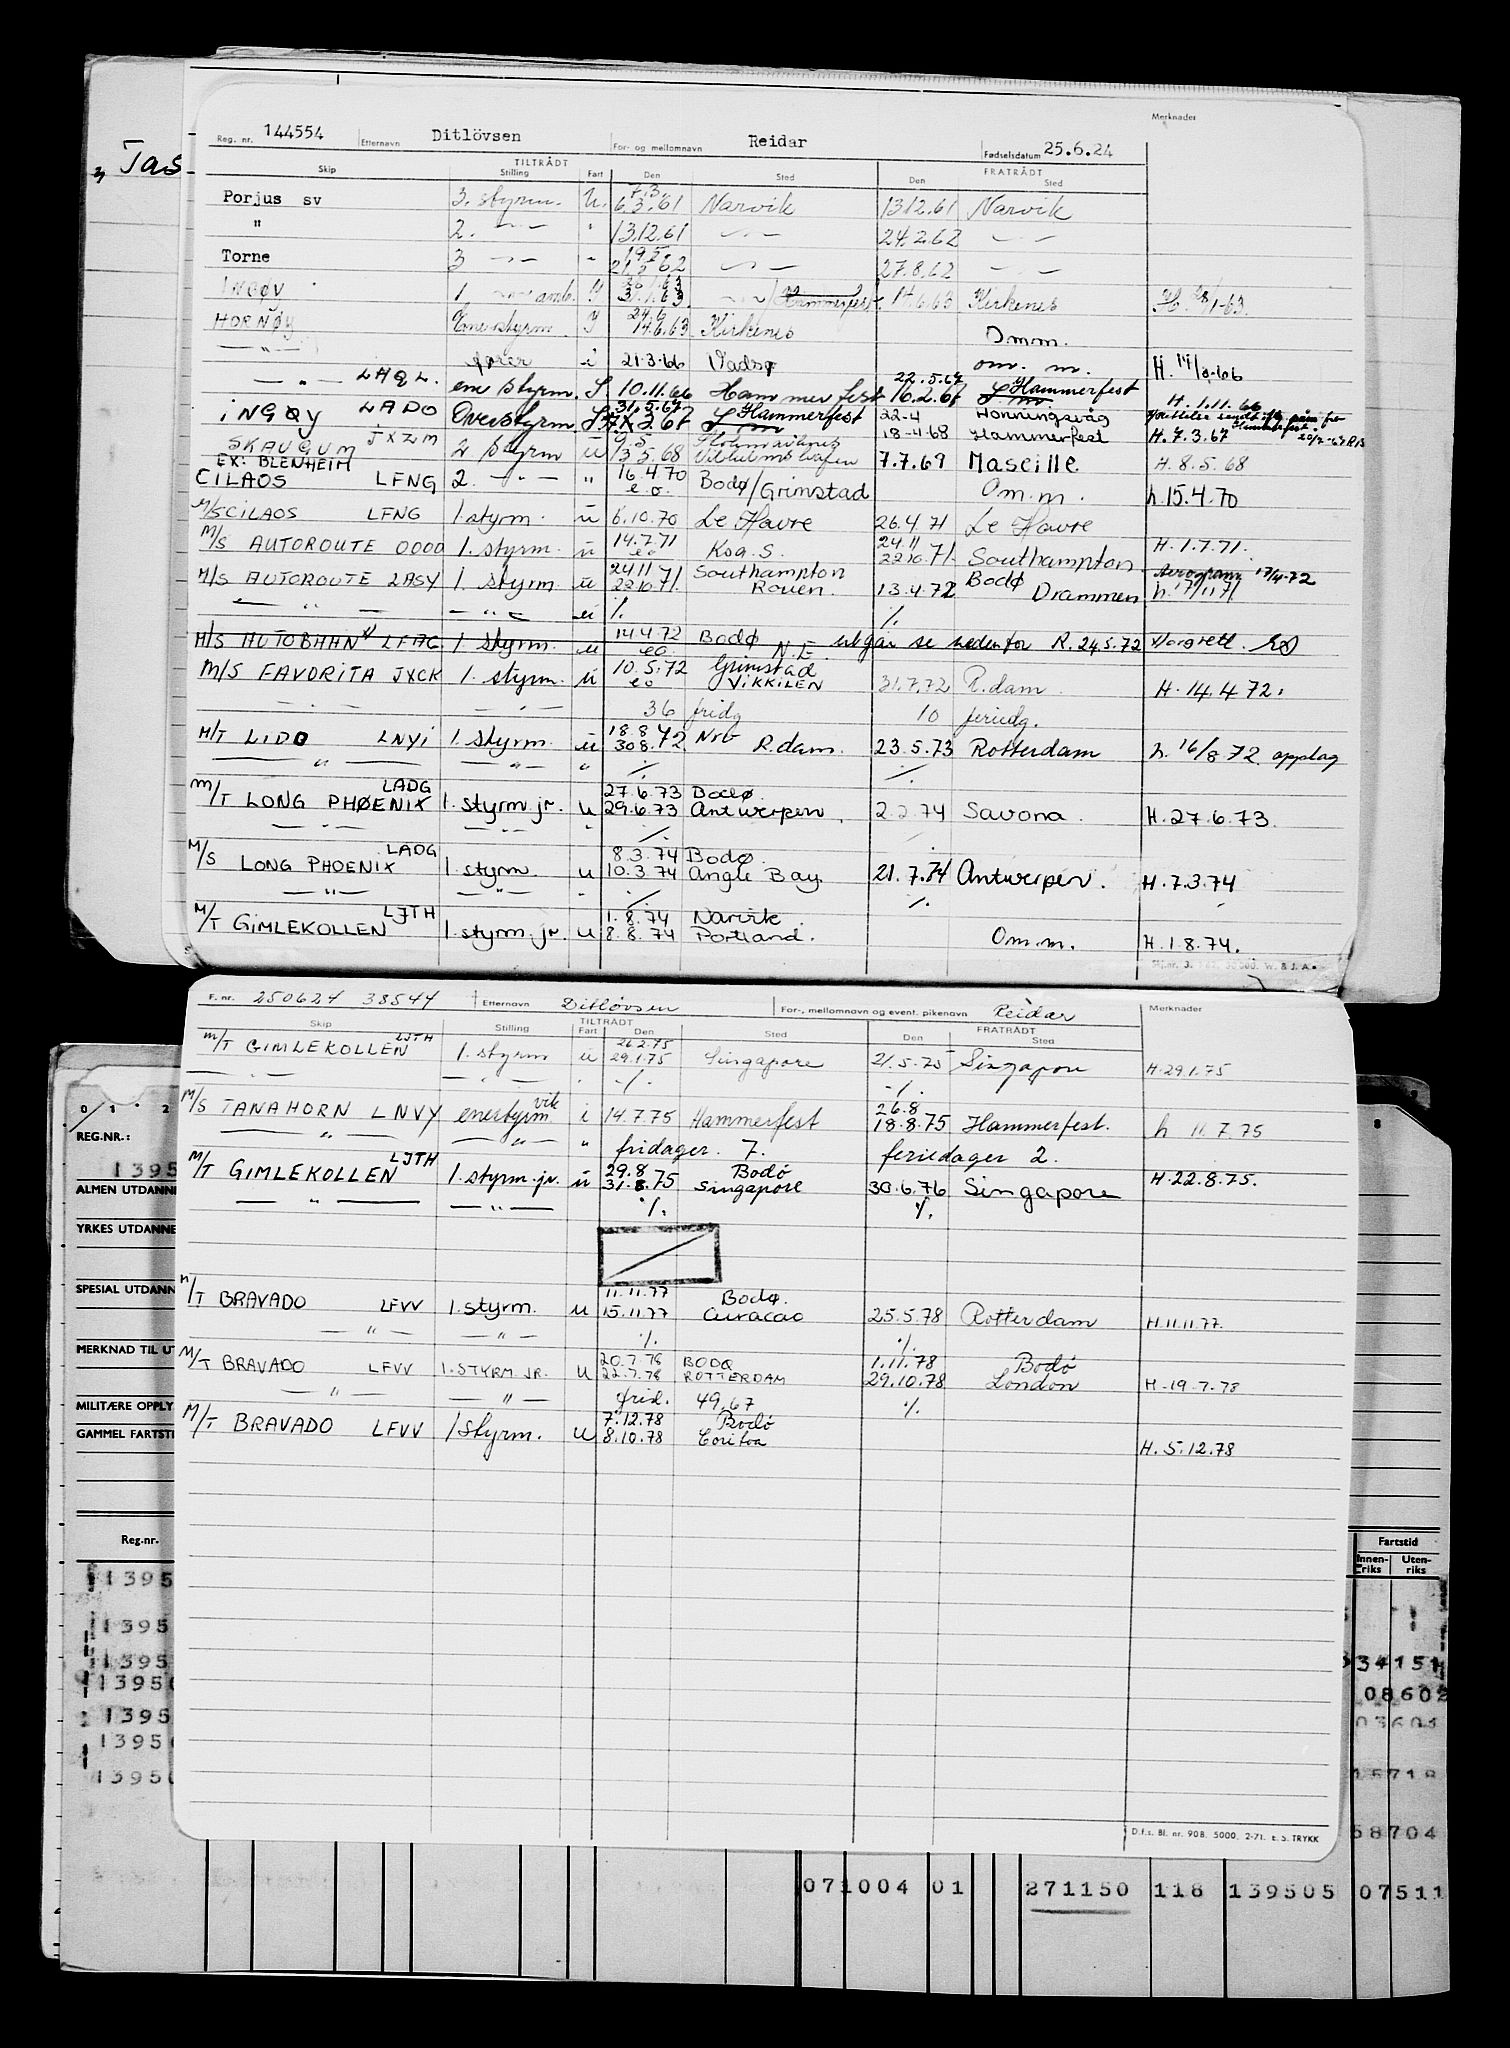 " Tas
Merknader
Reg. nr. 144554 Etternavn Ditlövsen For- og mellomnavn Reidar Fødselsdatum 25.6.24
TILTRÅDT FRATRÅDT
Skip Stilling Fart Den Sted Den Sted
7.3.
Porjus sv 3. styrm. U. 6.3.61 Narvik 13.12.61 Narvik
" 2. — " — " 13.12.61 — " — 24.2.62 — " —
Torne 3 — " — " 62 — " — 27.8.62 — " —
INGØY 1 — " — amb. 31.1.63 — " — / Hammerfest 14.6.63 Kirkenes H. 28/1-63.
24.6
HORNØY Enestyrm 14.6.63 Kirkenes Omm.
— " — fører i 21.3.66 Vadsø om. m. H.
22.5.67
— " — LHQL. ene styrm. S 10.11.66 Hammerfest 16.2.67 Hammerfest H. 1.11.66
31.5.67 Hammerfest 22-4 Honningsvåg
iNGØY LADO Overstyrm. 18-4.68 Hammerfest H. 7.3.67
SKAUGUM JXZM 2 styrm ü 13.5.68 Vilhelmshafen 7.7.69 Maseille H. 8.5.68
EX: BLENHEIM
16.4.70
CILAOS LFNG 2. — " — " e.o. Bodø/Grimstad Om.m. h.15.4.70
M/S CILAOS LFNG 1 styrm. ü 6.10.70 Le Havre 26.4.71 Le Havre
14.7.71 24.11
M/S AUTOROUTE 0000 1. styrm. ü eo Koa.S. 22.10.71. Southampton H.1.7.71.
24.11 Southampton Bodø Aerogram 17/4-72
M/S AUTOROUTE LASY 1. styrm ü 22.10.71. Rouen. 13.4.72 Drammen h. 17/11 71.
— " — — " — ü ·/. ·/.
14.4.72
M/S AUTOBAHN x) LFAG 1. styrm. ü eo Bodø N.E. utgår se nedenfor R.24.5.72 x)orgrett.
10.5.72 Grimstad
M/S FAVORITA JXCK 1. styrm. ü eo VIKKILEN 31.7.72 R.dam H.14.4 72.
— . — — . — 36 fridg 10 feriedg.
18.8
M/T LIDO LNYi 1. styrm. ü 30.8.72 R.dam. 23.5.73 Rotterdam h. 16/8 72 opplag
— " — — " — " ·/. ·/.
LADG 27.6.73 Bodø
M/T LONG PHØENIX 1. styrm. jr. u 29.6.73 Antwerpen. 2.2.74 Savona. H.27.6.73.
— " — — " — " ·/.
LADG 8.3.74 Bodø.
M/S LONG PHOENIX 1. styrm. u 10.3.74 Angle Bay. 21.7.74 Antwerpen. H.7.3.74
— " — — " — " ·/. ·/.
LJTH 1.8.74 Narvik
M/T GIMLEKOLLEN 1. styrm. jr. u 8.8.74 Portland. Om.m. H.1.8.74.
F. nr. 250624 38544 Etternavn Ditløvsen For-, mellomnavn og event. pikenavn Reidar Merknader
TILTRÅDT FRATRÅDT
Skip Stilling Fart Den Sted Den Sted
LJTH 26.2.75
M/T GIMLEKOLLEN 1. styrm u 29.1.75 Singapore 21.5.75 Singapore H.29.1.75
— " — — " — " ·/. ·/.
vik 26.8
M/S TANAHORN LNVY enestyrm. i 14.7.75 Hammerfest 18.8.75 Hammerfest. h 11.7.75
— " — — " — " fridager. 7. feriedager 2.
LJTH 29.8 Bodö
M/T GIMLEKOLLEN 1. styrm. jr. ü 31.8.75 Singapore 30.6.76 Singapore H.22.8.75.
— " — — " — ·/. ·/.
11.11.77 Bodø.
M/T BRAVADO LFVV 1. styrm. u 15.11.77 Curacao 25.5.78 Rotterdam H.11.11.77.
— " — — " — ·/. ·/.
20.7.78 BODØ 1.11.78 Bodö
M/T BRAVADO LFVV 1. STYRM JR. U 22.7.78 ROTTERDAM 29.10.78 London H.19.7.78
— " — — " frid. 49,67 ·/.
7.12.78 Bodö
M/T BRAVADO LFVV 1 styrm. u 8.10.78 H.5.12.78
D.f.s. Bl. nr. 908. 5000. 2-71. E.S. TRYKK
0 1 2 8
REG.NR.:
1395
ALMEN UTDANNE
YRKES UTDANNE
SPESIAL UTDANN
MERKNAD TIL UT
MILITÆRE OPPLY
GAMMEL FARTSTI
Reg.nr. Fartstid
Innenriks Utenriks
1395
1395
1395 34151
1395 08602
1395 03601
1395
1395 15718
58704
071004 01 271150 118 139505 07511